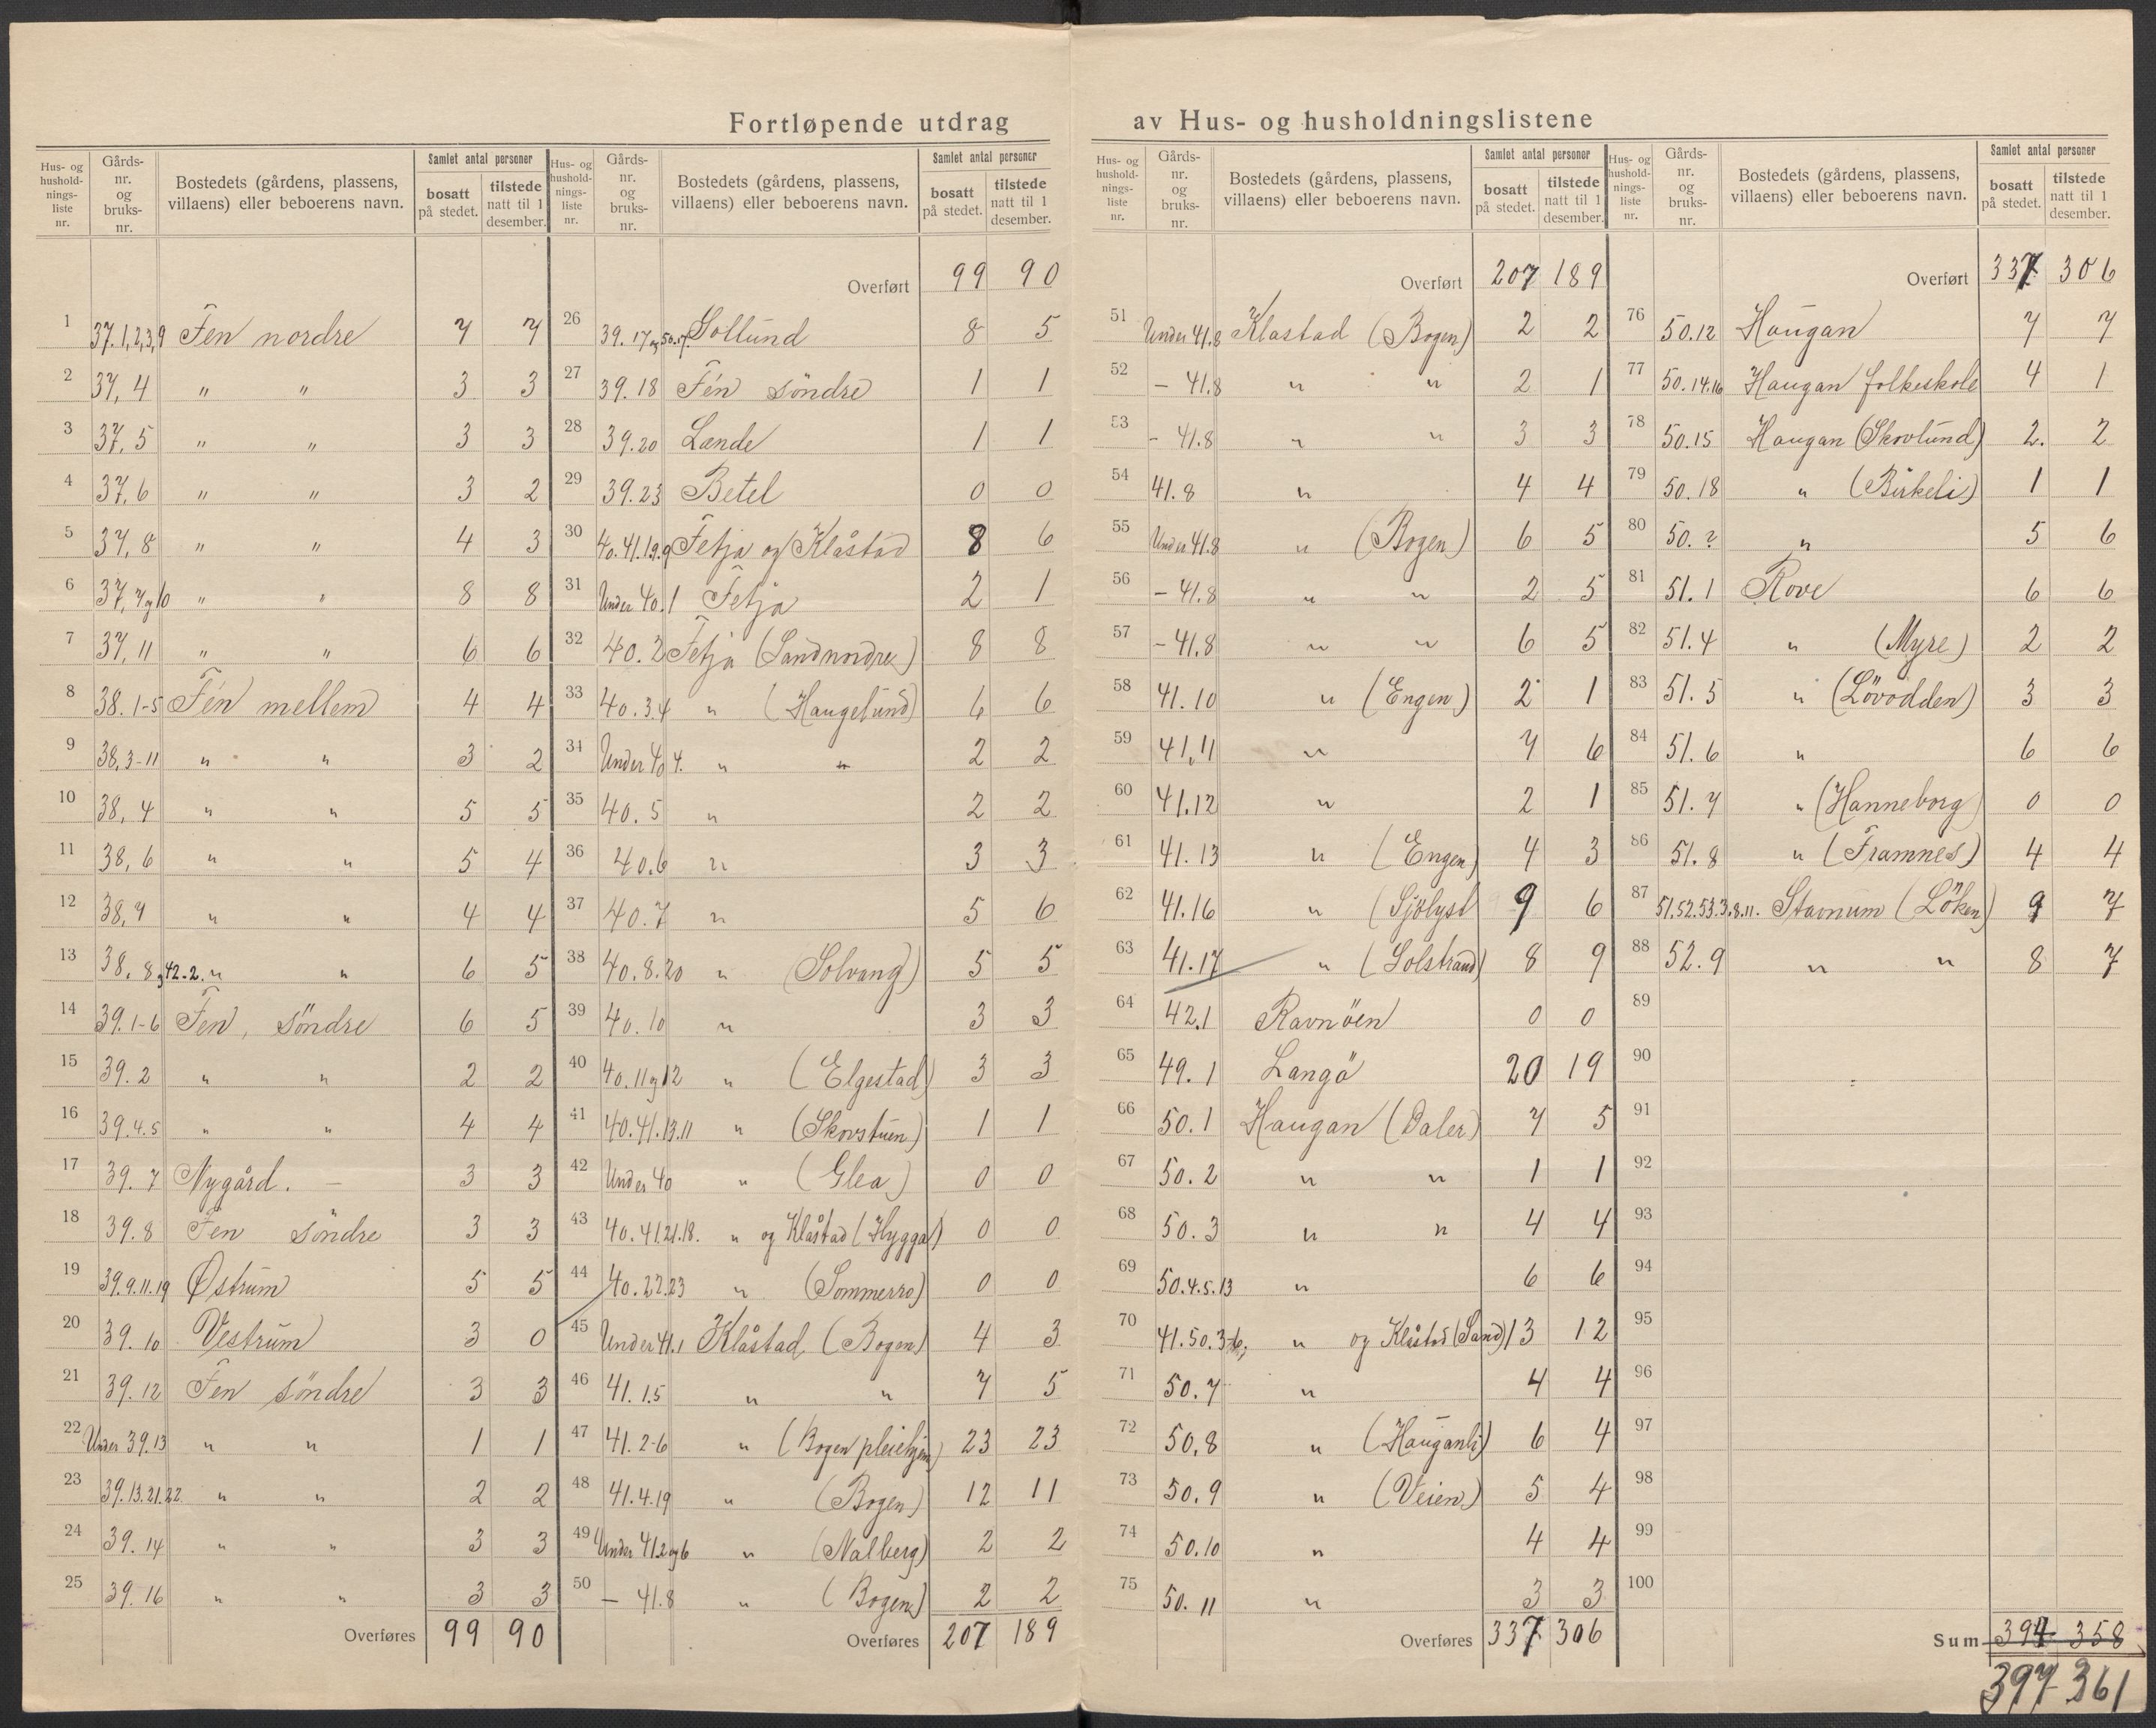 Fortløpende utdrag av Hus- og husholdningslistene
Hus- og hushold-nings-liste nr. Gårds-nr. og bruks-nr. Bostedets (gårdens, plassens, villaens) eller beboerens navn. Samlet antal personer bosatt på stedet. tilstede natt til 1 desember.
1 37.1,2,3,9 Fen nordre 7 7
2 37,4 " " 3 3
3 37,5 " " 3 3
4 37,6 " " 3 2
5 37,8 " " 4 3
6 37,7 og 10 " " 8 8
7 37,11 " " 6 6
8 38.1-5 Fén mellem 4 4
9 38,3-11 " " 3 2
10 38,4 " " 5 5
11 38,6 " " 5 4
12 38,7 " " 4 4
13 38,8 og 42.2. " " 6 5
14 39.1-6 Fen, söndre 6 5
15 39.2 " " 2 2
16 39.4.5 " " 4 4
17 39.7 Nygård. – 3 3
18 39.8 Fen söndre 3 3
19 39.9.11.19 Østrum 5 5
20 39.10 Vestrum 3 0
21 39.12 Fen söndre 3 3
22 Under 39.13 " " 1 1
23 39.13.21.22 " " 2 2
24 39.14 " " 3 3
25 39.16 " " 3 3
Overføres 99 90
Hus- og hushold-nings-liste nr. Gårds-nr. og bruks-nr. Bostedets (gårdens, plassens, villaens) eller beboerens navn. Samlet antal personer bosatt på stedet. tilstede natt til 1 desember.
Overført 99 90
26 39.17 og 50.17. Sollund 8 5
27 39.18 Fén söndre 1 1
28 39.20 Lande 1 1
29 39.23 Betel 0 0
30 40.41.1.9.9 Fetja og Klåstad 8 6
31 Under 40.1 Fetja 2 1
32 40.2 Fetja (Sandnordre) 8 8
33 40.3.4 " (Haugelund) 6 6
34 Under 40 4. " " 2 2
35 40.5 " 2 2
36 40.6 " 3 3
37 40.7 " 5 6
38 40.8.20 " (Solvang) 5 5
39 40.10 " 3 3
40 40.11 og 12 " (Elgestad) 3 3
41 40.41.13.11 " (Skovstuen) 1 1
42 Under 40 " (Glea) 0 0
43 40.41.21.18. " og Klåstad (Hygga) 0 0
44 40.22.23 " (Sommerro) 0 0
45 Under 41.1 Klåstad (Bogen) 4 3
46 41.1.5 " " 7 5
47 41.2-6 " (Bogen pleiehjem) 23 23
48 41.4.19 " (Bogen) 12 11
49 Under 41.2 og 6 " (Nalberg) 2 2
50 – 41.8 " (Bogen) 2 2
Overføres 207 189
Hus- og hushold-nings-liste nr. Gårds-nr. og bruks-nr. Bostedets (gårdens, plassens, villaens) eller beboerens navn. Samlet antal personer bosatt på stedet. tilstede natt til 1 desember.
Overført 207 189
51 Under 41.8 Klastad (Bogen) 2 2
52 – 41.8 " " 2 1
53 – 41.8 " " 3 3
54 41.8 " 4 4
55 Under 41.8 " (Bogen) 6 5
56 – 41.8 " " 2 5
57 – 41.8 " " 6 5
58 41.10 " (Engen) 2 1
59 41.11 " 7 6
60 41.12 " 2 1
61 41.13 " (Engen) 4 3
62 41.16 " (Sjölyst 9 6
63 41.17 " (Solstrand) 8 9
64 42.1 Ravnöen 0 0
65 49.1 Langö 20 19
66 50.1 Haugan (Daler) 7 5
67 50.2 " " 1 1
68 50.3 " " 4 4
69 50.4.5.13 " 6 6
70 41.50.3-6; " og Klåstad (Sand) 13 12
71 50.7 " 4 4
72 50,8 " (Hauganli) 6 4
73 50.9 " (Veien) 5 4
74 50.10 " 4 4
75 50.11 " 3 3
Overføres 337 306
Hus- og hushold-nings-liste nr. Gårds-nr. og bruks-nr. Bostedets (gårdens, plassens, villaens) eller beboerens navn. Samlet antal personer bosatt på stedet. tilstede natt til 1 desember.
Overført 337 306
76 50.12 Haugan 7 7
77 50.14.16 Haugan folkeskole 4 1
78 50.15 Haugan (Skovlund) 2. 2
79 50.18 " (Birkeli) 1 1
80 50.? " 5 6
81 51.1 Rove 6 6
82 51.4 " (Myre) 2 2
83 51.5 " (Lövodden) 3 3
84 51.6 " 6 6
85 51.7 " (Hanneborg) 0 0
86 51.8 " (Framnes) 4 4
87 51.52.53.3.8.11. Stavnum (Löken) 9 7
88 52.9 " " 8 7
89
90
91
92
93
94
95
96
97
98
99
100
Sum 394 358
397 361